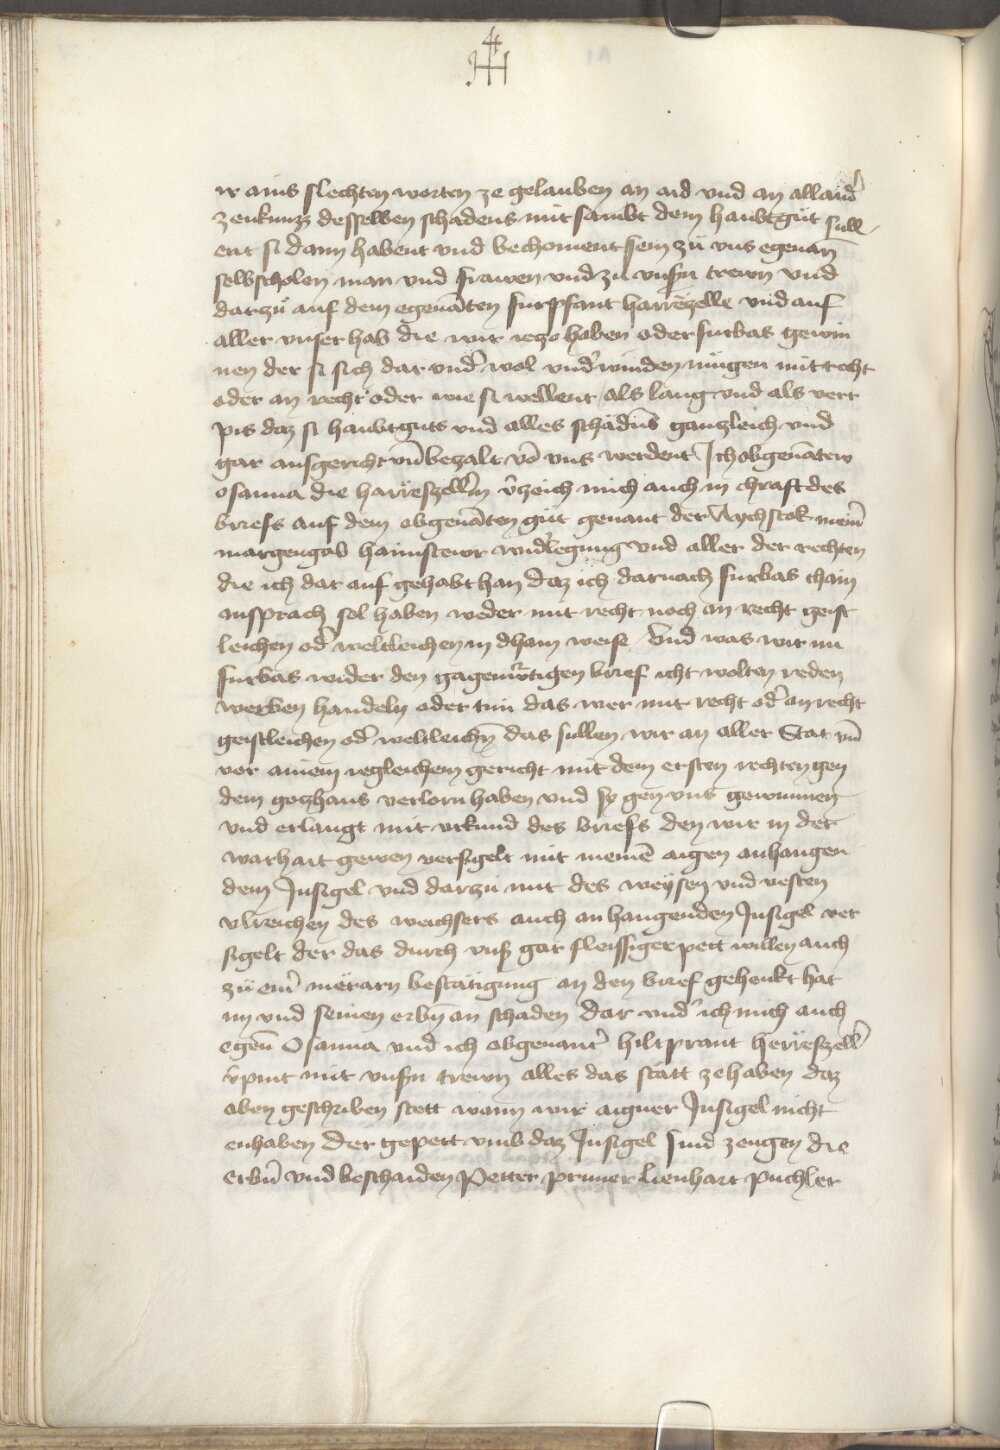 ir ains slechten worten ze gelauben an aid vnd an alland̾
zeukunzz desselben schadens mit sambt dem haubtgut sull
ent si dann habent vnd bechoment sein zu vns egenan̄
selbscholen man vnd frawen vnd zu vnsn̄ trewn vnd
darzů auf dem egenāten furpfant harreszelle vnd auf
aller vnser hab die wir iezo haben oder furbas gewin
nen der si sich dar vnd̾ wol vnd̾winden mugen mit recht
oder an recht oder wie si wellent als lang vnd als verr
pis daz si haubtguts vnd alles schadn̄s ganzleich vnd
gar ausgericht vn̄ bezalt vō vns werdent Ich obgenāten
Osanna die harreszellīn v̾zeich mich auch in chraft des
briefs auf dem obgenāten gut genant der Aychstok mein̾
margengab haimstewr wid̾legung vnd aller der rechten
die ich dar auf gehabt han daz ich darnach furbas chain
ansprach sol haben weder mit recht noch an recht geist
leichen od̾ weltleichen in dhain weise Vnd was wir nu
furbas wider den gagenw̾tigen brief icht wolten reden
werben handeln oder tun das wer mit recht od̾ an recht
geistleichen od̾ weltleichn̄ das sullen wir an aller Stat vn̄
vor ainem iegleichem gericht mit dem ersten rechten gen
dem gozhaus verlorn haben vnd sy gen vns gewunnen
vnd erlangt mit vrkund des briefs den wir in der
warhait gewen versigelt mit meinē aigen anhangen
dem Insigel vnd darzu mit des weysen vnd vesten
vlreichen des weichsers auch anhangenden Insigel ver
sigelt der das durch vns̾ gar fleissiger pett willen auch
zu ein̾ merarn bestätigung an den brief gehenkt hat
im vnd seinen erbn̄ an schaden dar vnd̾ ich mich auch
egen̄ Osanna vnd ich obgenant̾ hiltprant herreszell̾
v̾pint mit vnsn̄ trewn alles das statt ze haben daz
oben geschriben stett wann wir aigner Insigel nicht
enhaben Der gepett vmb daz Insigel sind zeugen die
erbn̄ vnd beschaiden Petter pruner lienhart puchler